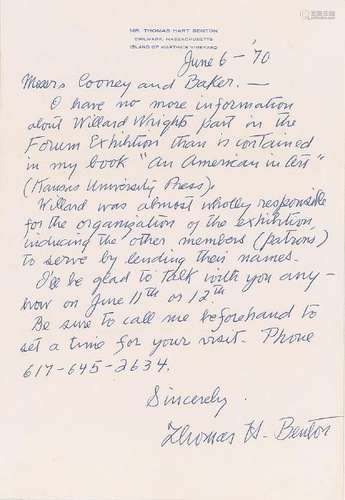 MR. THOMAS HART BENTON
CHILMARK, MASSACHUSETTS
ISLAND OF MARTHA'S VINEYARD
June 6 – '70
Messrs Cooney and Baker. —
I have no more information
about Willard Wrights part in the
Forum Exhibition than is contained
in my book "An American in Art"
(Kansas University Press).
Willard was almost wholly responsible
for the organization of the exhibition,
inducing the other members (patrons)
to serve by lending their names.
I'll be glad to talk with you any-
how on June 11th or 12th
Be sure to call me beforehand to
set a time for your visit. Phone
617-645-2634.
Sincerely.
Thomas H. Benton